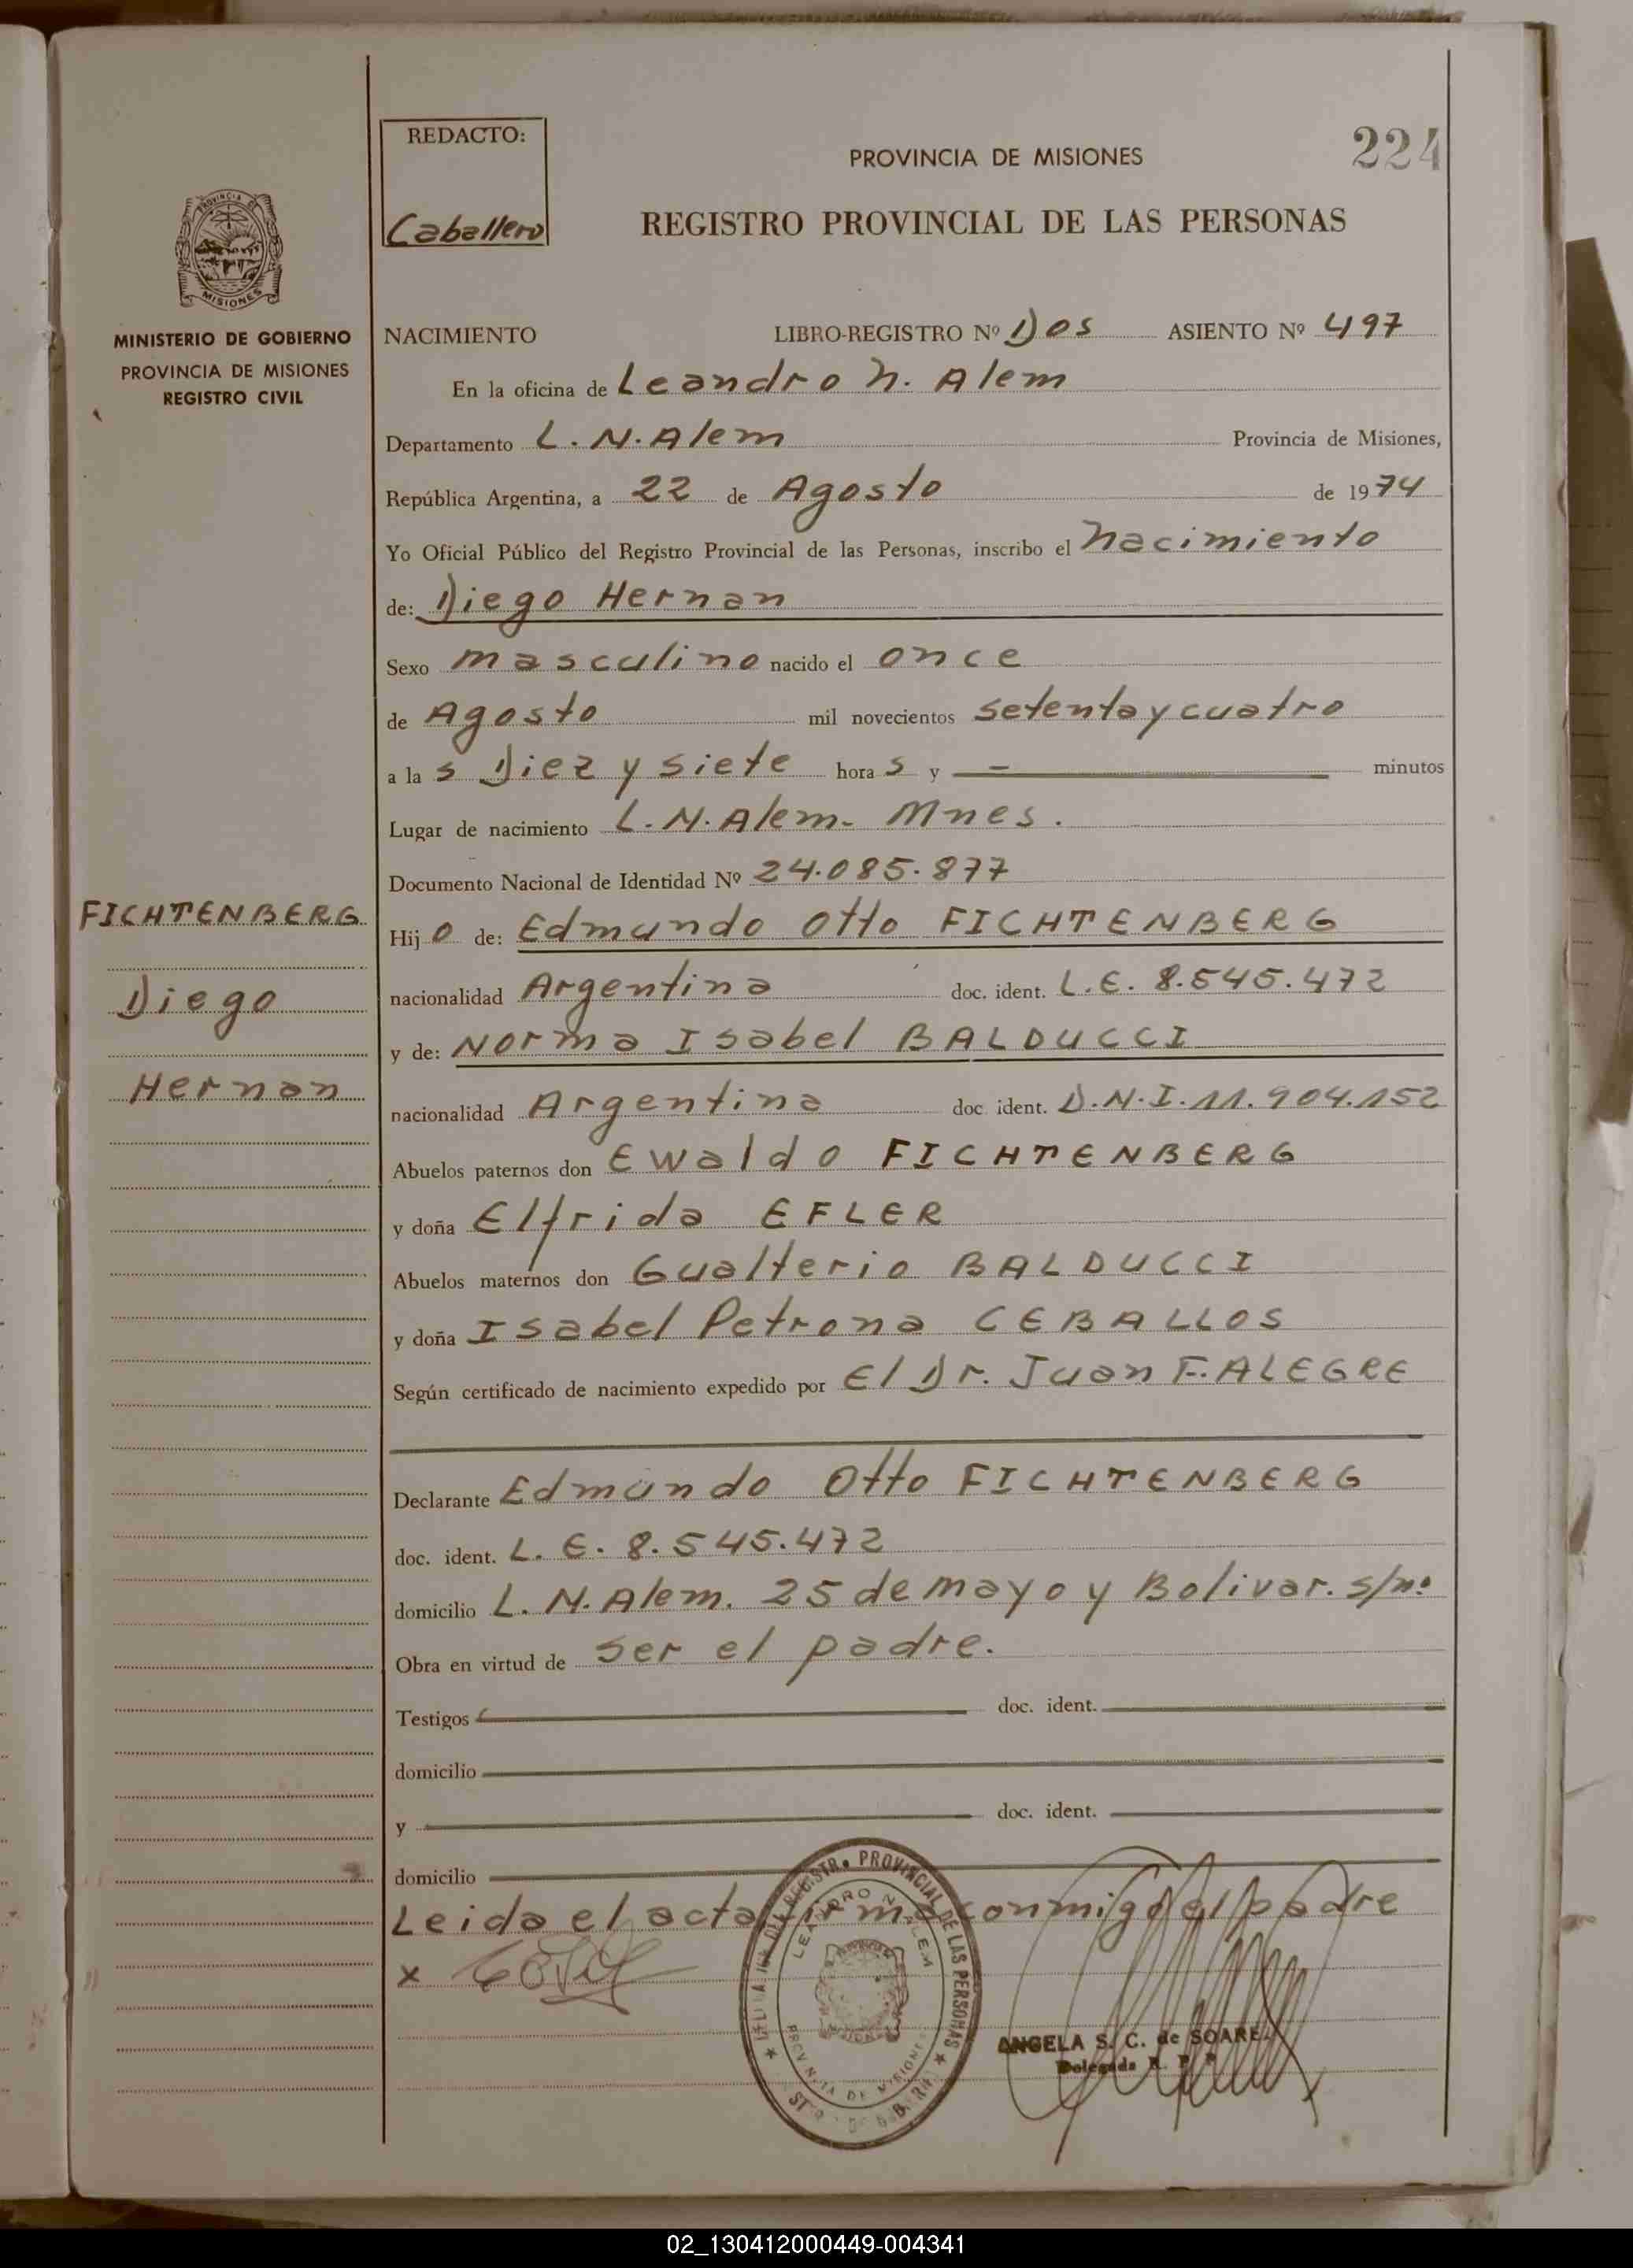 REDACTO:
Caballero
PROVINCIA DE MISIONES
224
REGISTRO PROVINCIAL DE LAS PERSONAS
PROVINCIA DE
MISIONES
MINISTERIO DE GOBIERNO
PROVINCIA DE MISIONES
REGISTRO CIVIL
NACIMIENTO LIBRO-REGISTRO Nº Dos ASIENTO Nº 497
En la oficina de Leandro N. Alem
Departamento L. N. Alem Provincia de Misiones,
República Argentina, a 22 de Agosto de 1974
Yo Oficial Público del Registro Provincial de las Personas, inscribo el nacimiento
de: Diego Hernan
Sexo masculino nacido el once
de Agosto mil novecientos setenta y cuatro
a las Diez y siete horas y — minutos
Lugar de nacimiento L. N. Alem - Mnes.
Documento Nacional de Identidad Nº 24.085.877
FICHTENBERG
Diego
Hernan
Hijo de: Edmundo Otto FICHTENBERG
nacionalidad Argentina doc. ident. L.E. 8.545.472
y de: Norma Isabel BALDUCCI
nacionalidad Argentina doc ident. D.N.I. 11.904.152
Abuelos paternos don Ewaldo FICHTENBERG
y doña Elfrida EFLER
Abuelos maternos don Gualterio BALDUCCI
y doña Isabel Petrona CEBALLOS
Según certificado de nacimiento expedido por El Dr. Juan F. ALEGRE
Declarante Edmundo Otto FICHTENBERG
doc. ident. L. E. 8.545.472
domicilio L. N. Alem. 25 de mayo y Bolivar. s/nº
Obra en virtud de ser el padre.
Testigos doc. ident.
domicilio
y doc. ident.
domicilio
Leida el acta firma conmigo el padre
x
REGISTR. PROVINCIAL DE LAS PERSONAS
LEANDRO N. ALEM
PROVINCIA DE MISIONES
ANGELA S. C. de SOAREZ
Delegada R. P. P.
02_130412000449-004341